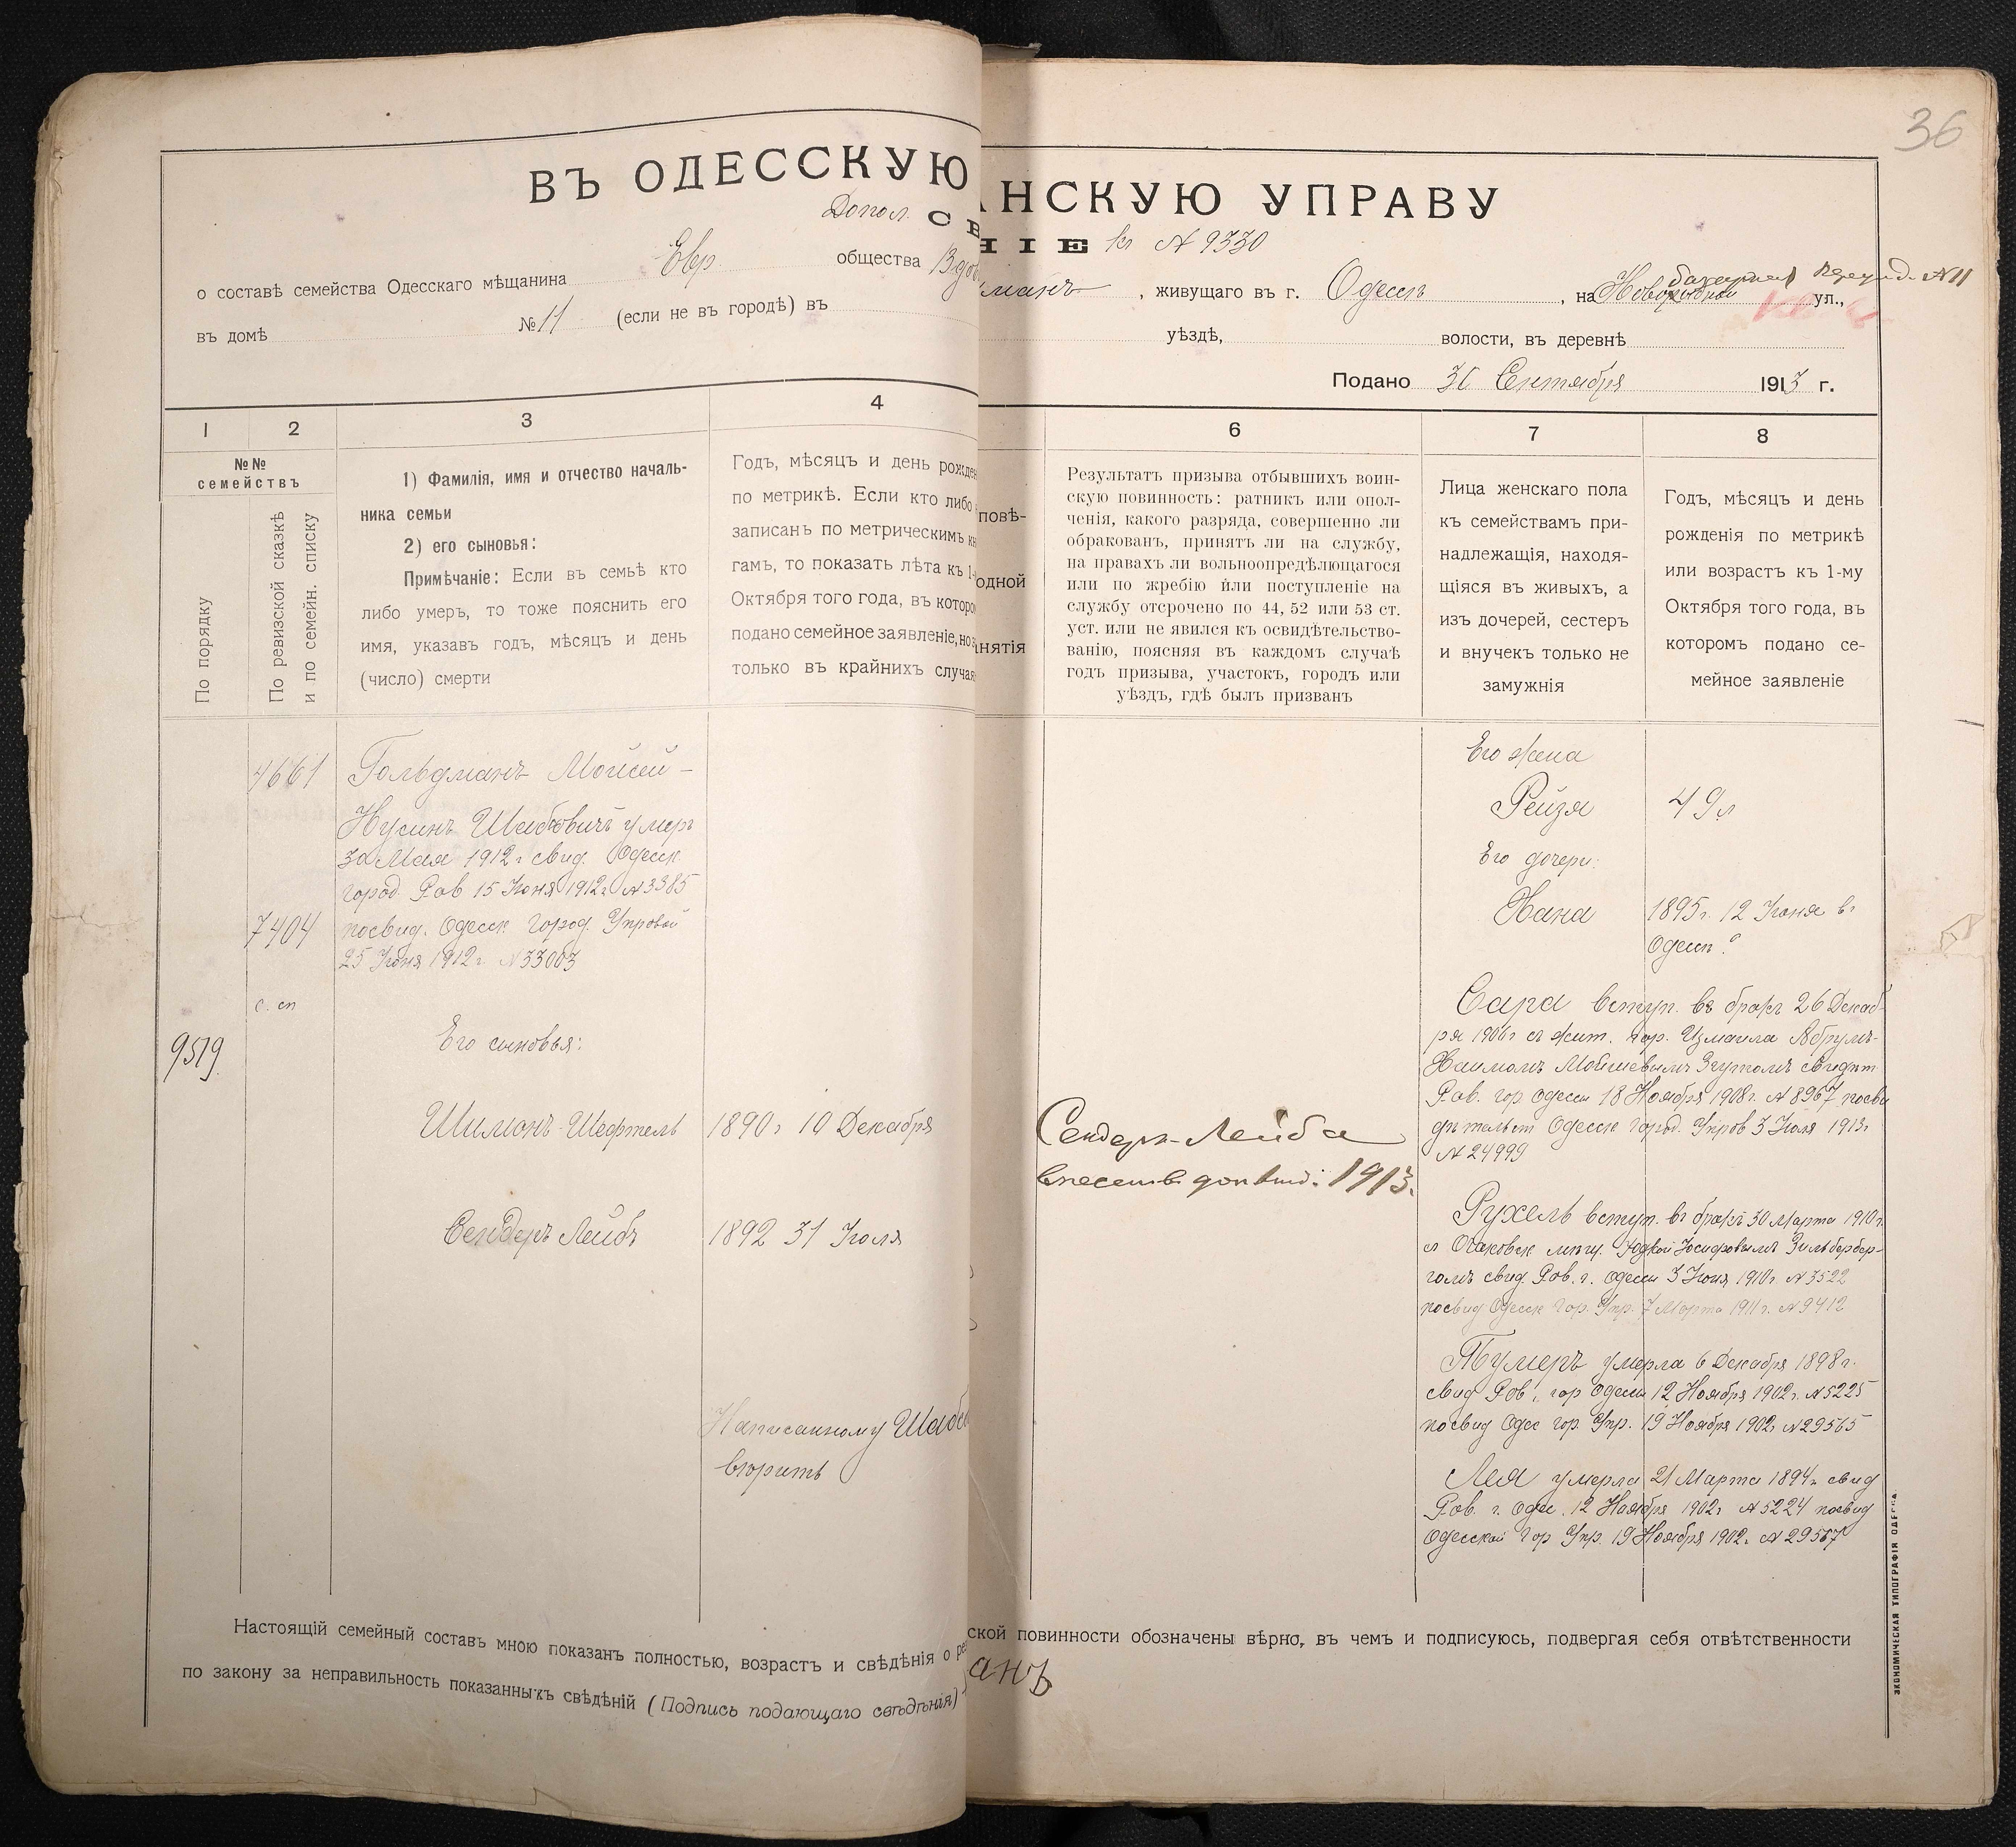 36
ВЪ ОДЕССКУЮ
АНСКУЮ УПРАВУ
Допол. СВ
НІЕ къ № 9330
о составѣ семейства Одесскаго мѣщанина Евр. общества Вдов
манъ, живущаго въ г. Одессѣ, на Новобазарный переул. №11 ул.,
въ домѣ № 11 (если не въ городѣ) въ
уѣздѣ, волости, въ деревнѣ
Подано Сентября 1913 г.
1 2 3 4
6 7 8
№№ семействъ
По порядку
По ревизской сказкѣ и по семейн. списку
1) Фамилія, имя и отчество началь-
ника семьи
2) его сыновья:
Примѣчаніе: Если въ семьѣ кто
либо умеръ, то тоже пояснить его
имя, указавъ годъ, мѣсяцъ и день
(число) смерти
Годъ, мѣсяцъ и день рожден
по метрикѣ. Если кто либо
записанъ по метрическимъ кн
гамъ, то показать лѣта къ 1-
Октября того года, въ которо
подано семейное заявленіе, но
только въ крайнихъ случая
повѣ-
одной
нятія
Результатъ призыва отбывшихъ воин-
скую повинность: ратникъ или опол-
ченія, какого разряда, совершенно ли
обракованъ, принятъ ли на службу,
на правахъ ли вольноопредѣляющагося
или по жребію или поступленіе на
службу отсрочено по 44, 52 или 53 ст.
уст. или не явился къ освидѣтельство-
ванію, поясняя въ каждомъ случаѣ
годъ призыва, участокъ, городъ или
уѣздъ, гдѣ былъ призванъ
Лица женскаго пола
къ семействамъ при-
надлежащія, находя-
щіяся въ живыхъ, а
изъ дочерей, сестеръ
и внучекъ только не
замужнія
Годъ, мѣсяцъ и день
рожденія по метрикѣ
или возрастъ къ 1-му
Октября того года, въ
которомъ подано се-
мейное заявленіе
4661
Гольдманъ Мойсей-
Нусинъ Шабсовичъ умеръ
30 Мая 1912 г свид. Одесск.
город. Рав 15 Іюня 1912 г. №3385
7404
посвид. Одесск. Город. Управой
25 Іюня 1912 г. №33003
с. сп
9519
Его сыновья:
Шимонъ-Шефтель 1890 г 10 Декабря
Сендеръ Лейбъ 1892 31 Іюля
Написанному Шабс
вѣрить
Сендеръ-Лейба
внесенъ доп 1913.
Его жена
Рейзя 49 л
Его дочери:
Хана 1895 г. 12 Іюня въ
Одессѣ
Сара вступ. въ бракъ 26 Декаб-
ря 1906 г съ жит. гор. Измаила Абрумъ-
Хаимомъ Мойшевымъ свидѣт
Рав. гор. Одессы 18 Ноября 1908 г. №8967 посви
дѣтельст Одесск Город. Управ 3 Іюля 1913 г
№24999
Рухель вступ. въ бракъ 30 Марта 1910 г.
съ Очаковск мѣщ. Юдкой Іосифовымъ Зильбербер-
гомъ свид. Рав. г. Одессы 3 Іюня 1910 г №3522
посвид Одесск Гор. Упр. 7 Марта 1911 г. №9412
умерла 6 Декабря 1898 г.
свид Рав. гор Одессы 12 Ноября 1902 г. №5225
посвид Одес гор. Упр. 19 Ноября 1902 г №29565
Лея умерла 21 Марта 1894 г. свид
Рав. г. Одес. 12 Ноября 1902 г №5224 посвид
Одесской Гор Упр. 19 Ноября 1902 г. №29567
Настоящій семейный составъ мною показанъ полностью, возрастъ и свѣдѣнія о ре
ской повинности обозначены вѣрно, въ чемъ и подписуюсь, подвергая себя отвѣтственности
по закону за неправильность показанныхъ свѣдѣній (Подпись подающаго свѣдѣнія)
анъ
ЭКОНОМИЧЕСКАЯ ТИПОГРАФІЯ ОДЕССА.